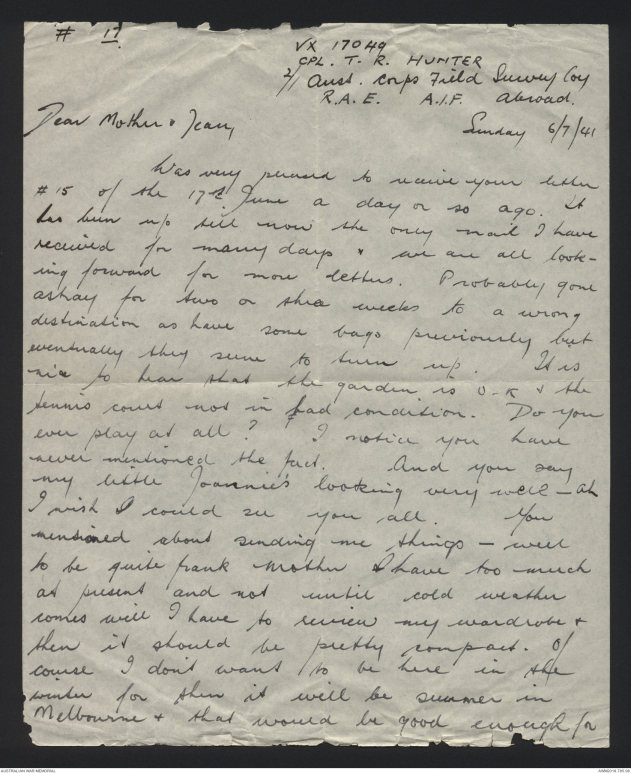 # 17
VX 17049
CPL. T. R. HUNTER
2/1 Aust. Corps Field Survey Coy
R.A.E. A.I.F. Abroad.
Dear Mother & Jean,
Sunday 6/7/41
Was very pleased to receive your letter
# 15 of the 17th June a day or so ago. It
has been up till now the only mail I have
received for many days & we are all look-
ing forward for more letters. Probably gone
astray for two or three weeks to a wrong
destination as have some bags previously but
eventually they seem to turn up. It is
nice to hear that the garden is O-K & the
tennis court not in bad condition. Do you
ever play at all? I notice you have
never mentioned the fact. And you say
my little Joannie's looking very well - ah
I wish I could see you all. You
mentioned about sending me things - well
to be quite frank Mother I have too much
at present and not until cold weather
comes will I have to review my wardrobe &
then it should be pretty compact. Of
course I don't want to be here in the
winter for then it will be summer in
Melbourne & that would be good enough for
AUSTRALIAN WAR MEMORIAL